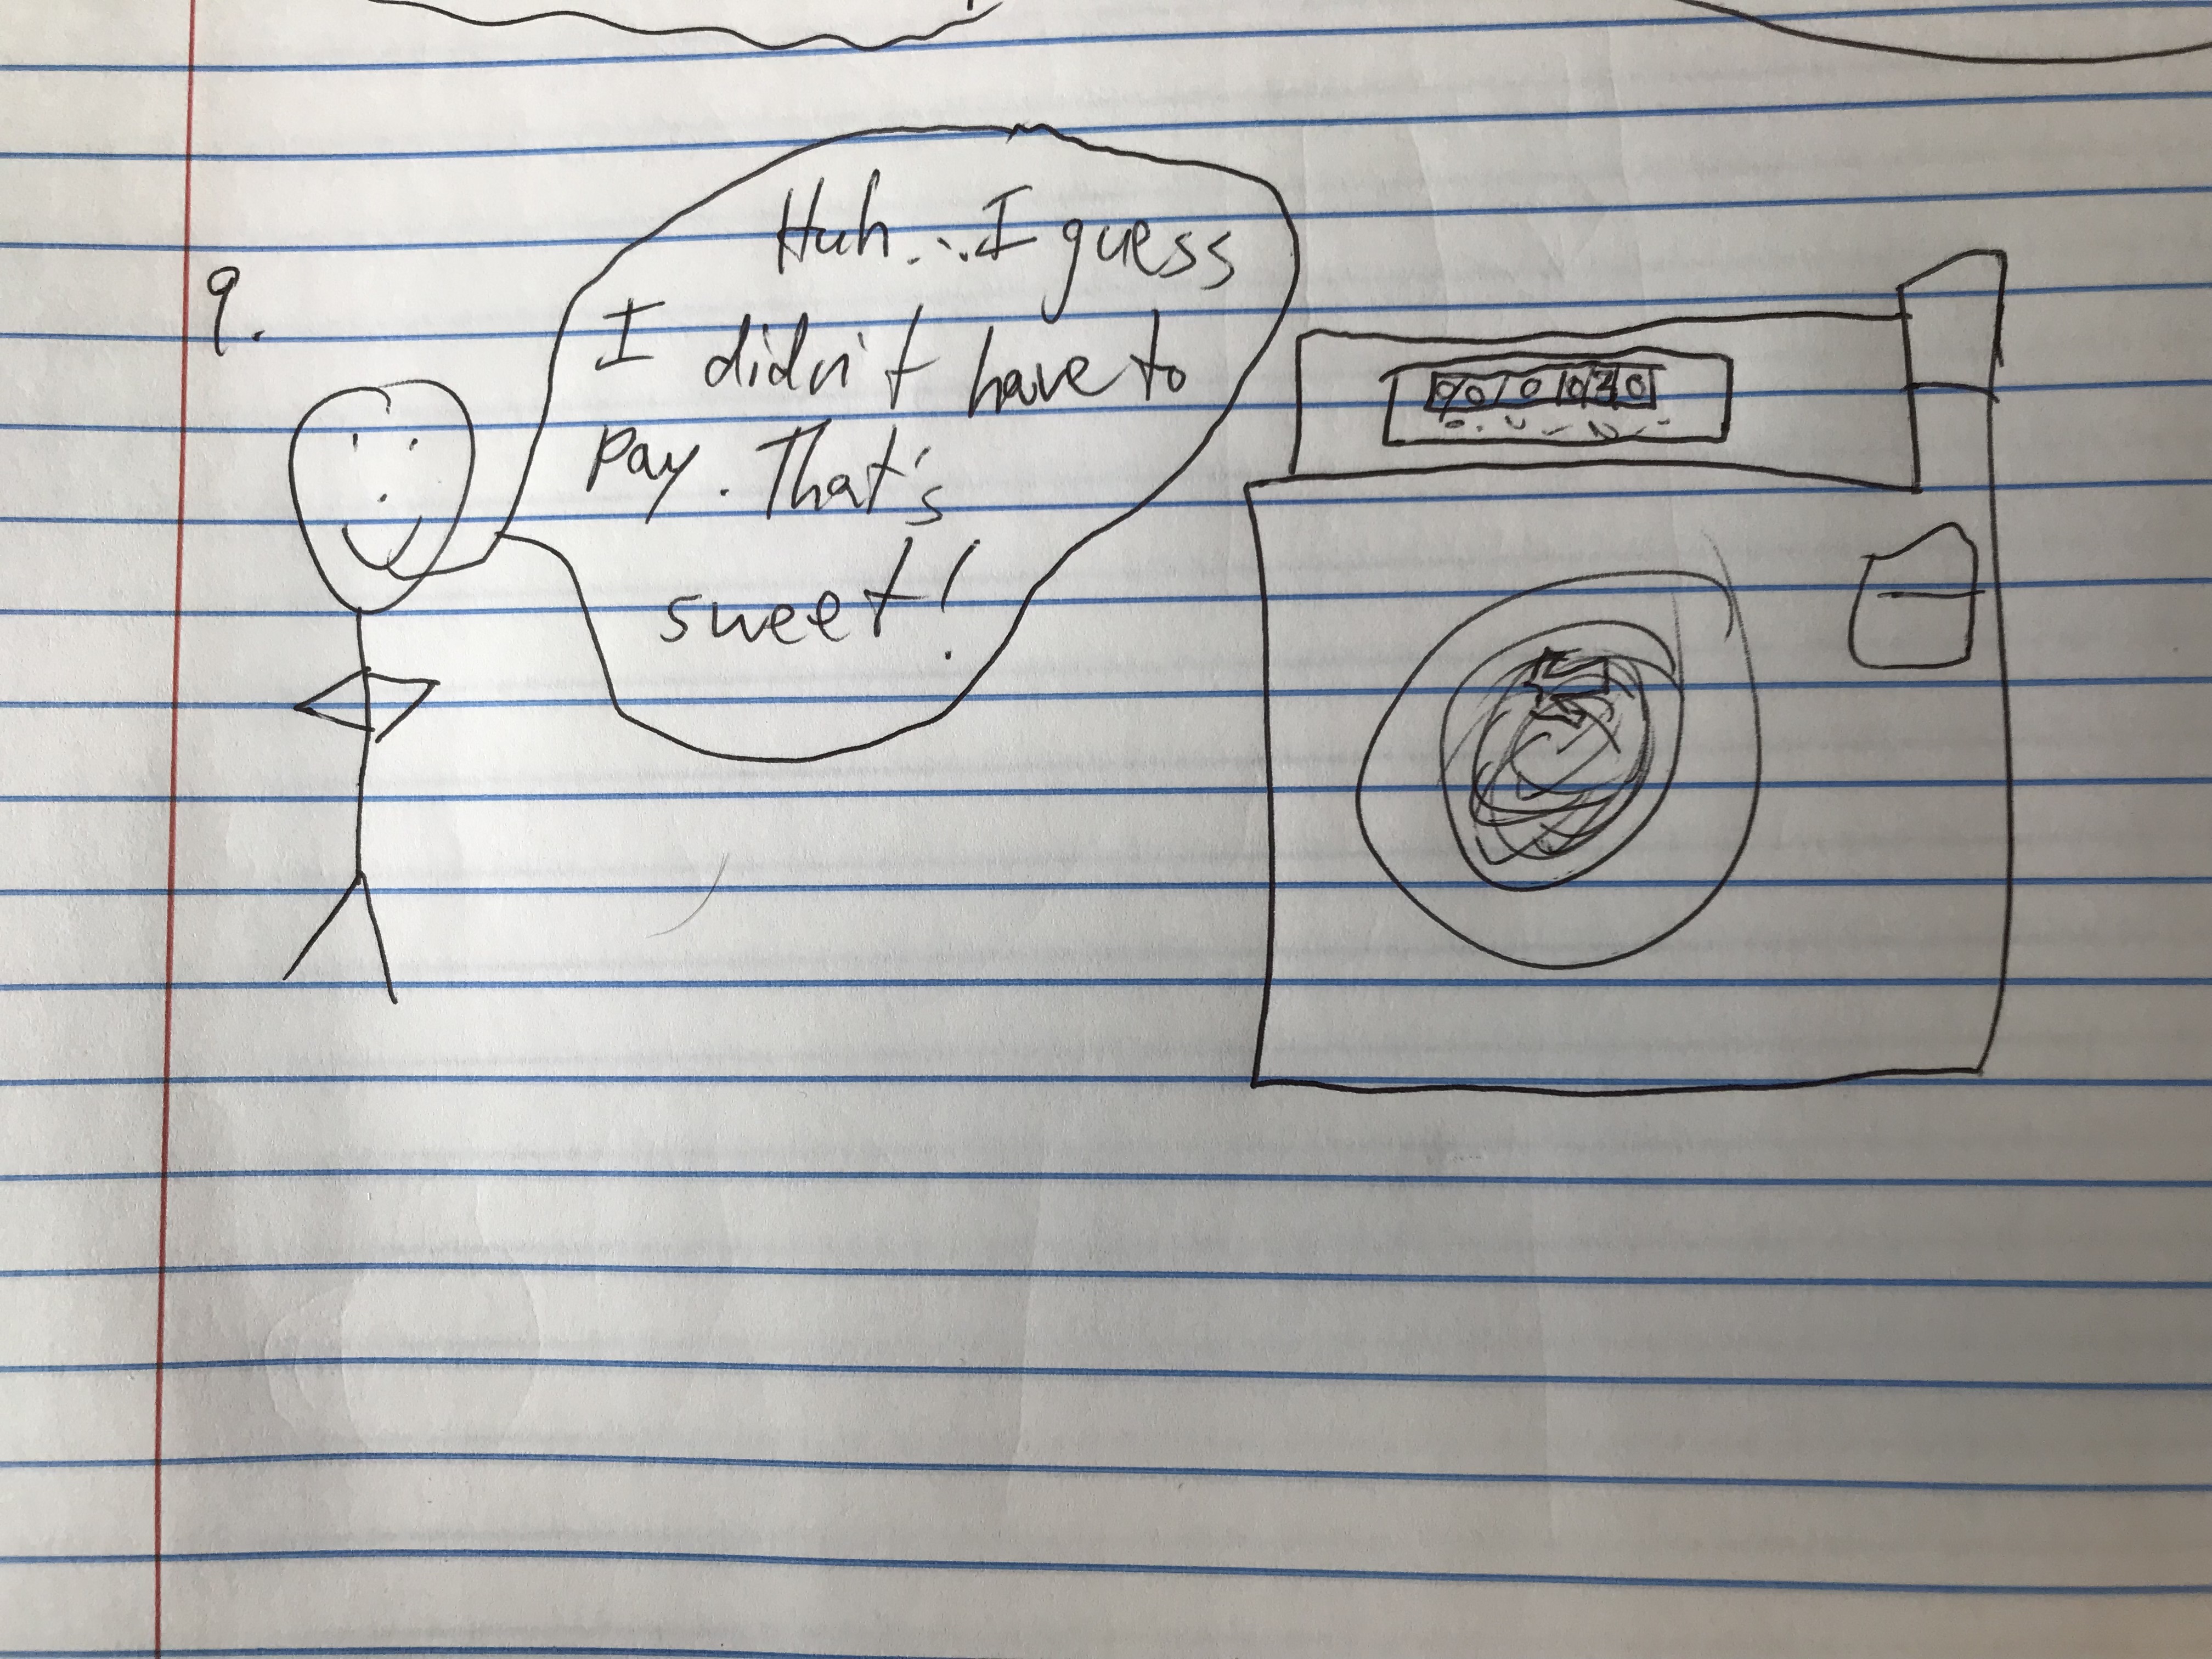 9.
Huh...I guess
I didn't have to
pay. That's
sweet!